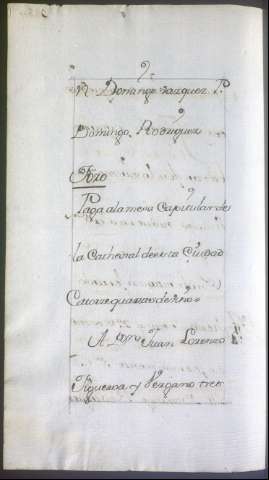 Domingo Vazquez P.
Domingo Rodriguez
Foro
Paga a la mesa Capitular de
la Cathedral de esta Ciudad
Catorze quartas de Vino =
A Dn Juan Lorenzo
Figueroa y Vergano tres